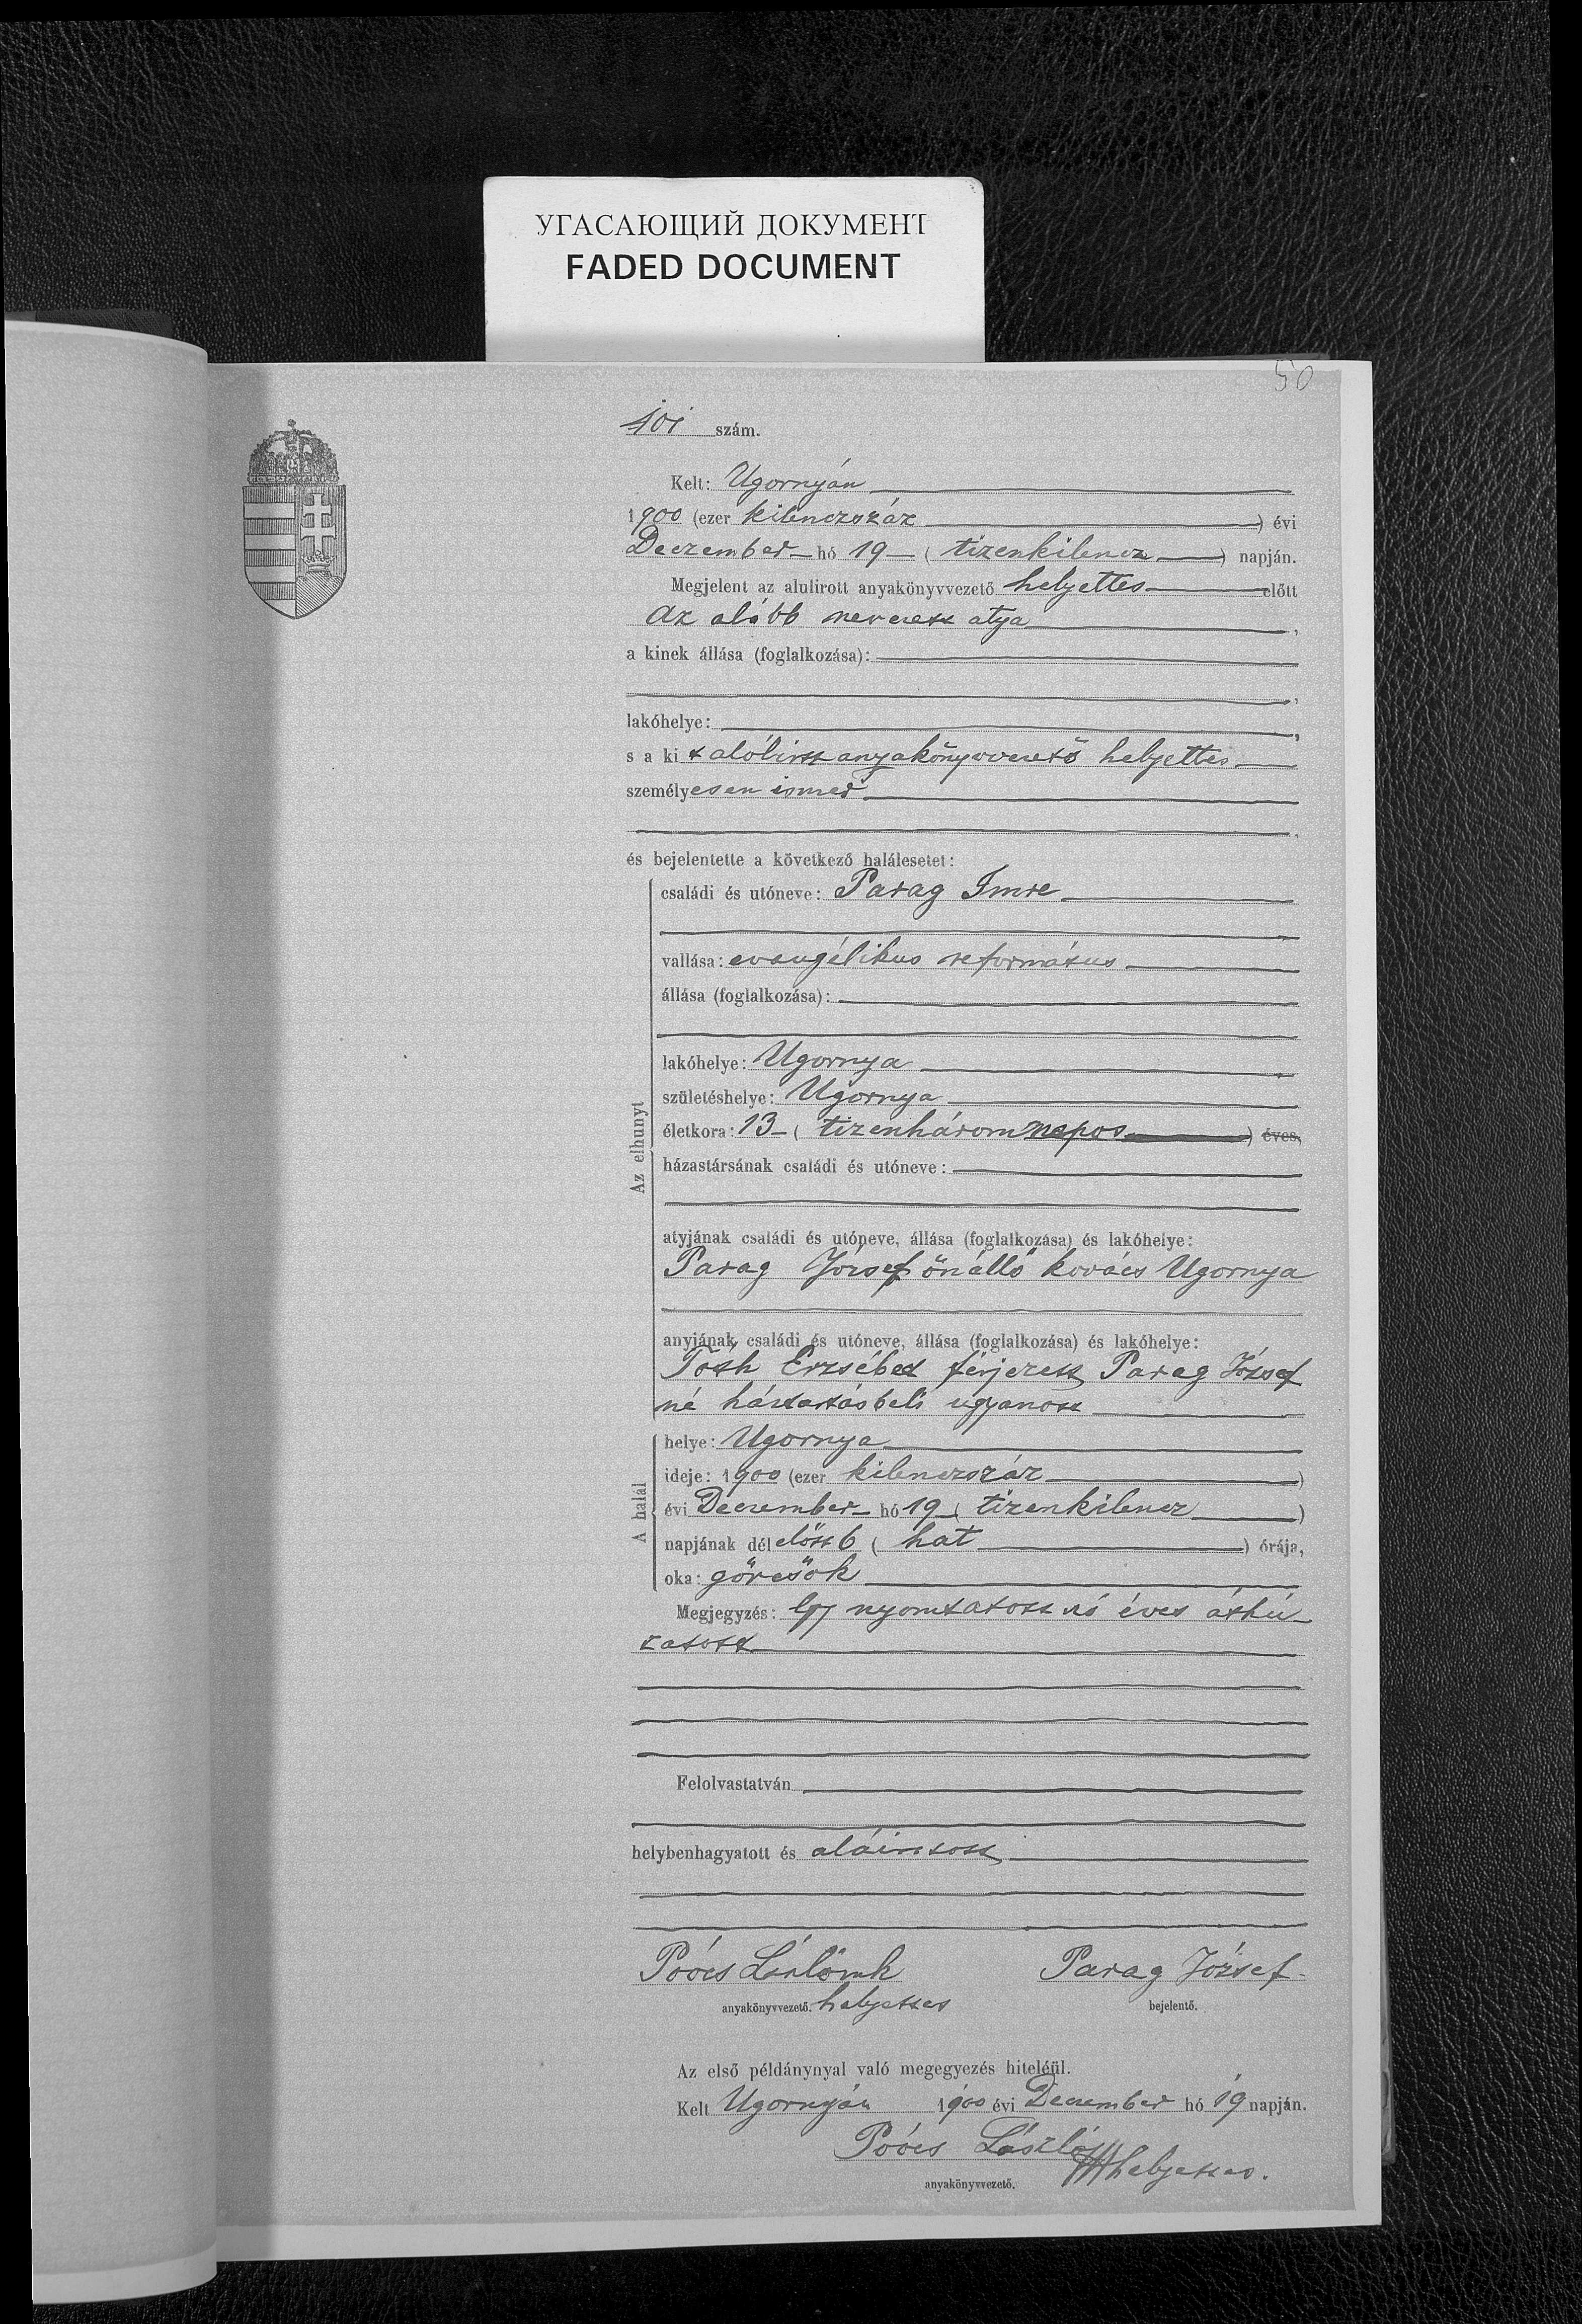 УГАСАЮЩИЙ ДОКУМЕНТ
FADED DOCUMENT
50
101 szám.
Kelt: Ugornyán
1900 (ezer kilenczszáz ) évi
Deczember hó 19 ( tizenkilencz ) napján.
Megjelent az alulirott anyakönyvvezető helyettes előtt
Az alább nevezett atya ,
a kinek állása (foglalkozása):
,
lakóhelye: ,
s a kit alólirtt anyakönyvvezető helyettes
személyesen ismer
.
és bejelentette a következő halálesetet:
Az elhunyt
családi és utóneve: Parag Imre
vallása: evangélikus református
állása (foglalkozása):
lakóhelye: Ugornya
születéshelye: Ugornya
életkora: 13 ( tizenhárom napos ) éves,
házastársának családi és utóneve:
atyjának családi és utóneve, állása (foglalkozása) és lakóhelye:
Parag József önálló kovács Ugornya
anyjának családi és utóneve, állása (foglalkozása) és lakóhelye:
Tóth Erzsébet férjezett Parag József
né háztartásbeli ugyanott
A halál
helye: Ugornya
ideje: 1900 (ezer kilenczszáz )
évi Deczember hó 19 ( tizenkilencz )
napjának dél előtt 6 ( hat ) órája,
oka: görcsök
Megjegyzés: Egy nyomtatott szó éves áthú-
zatott
Felolvastatván
helybenhagyatott és aláirtott
Poócs László Parag József
anyakönyvvezető. helyettes bejelentő.
Az első példánynyal való megegyezés hiteléül.
Kelt Ugornyán 1900 évi Deczember hó 19 napján.
Poócs László
anyakönyvvezető. helyettes.